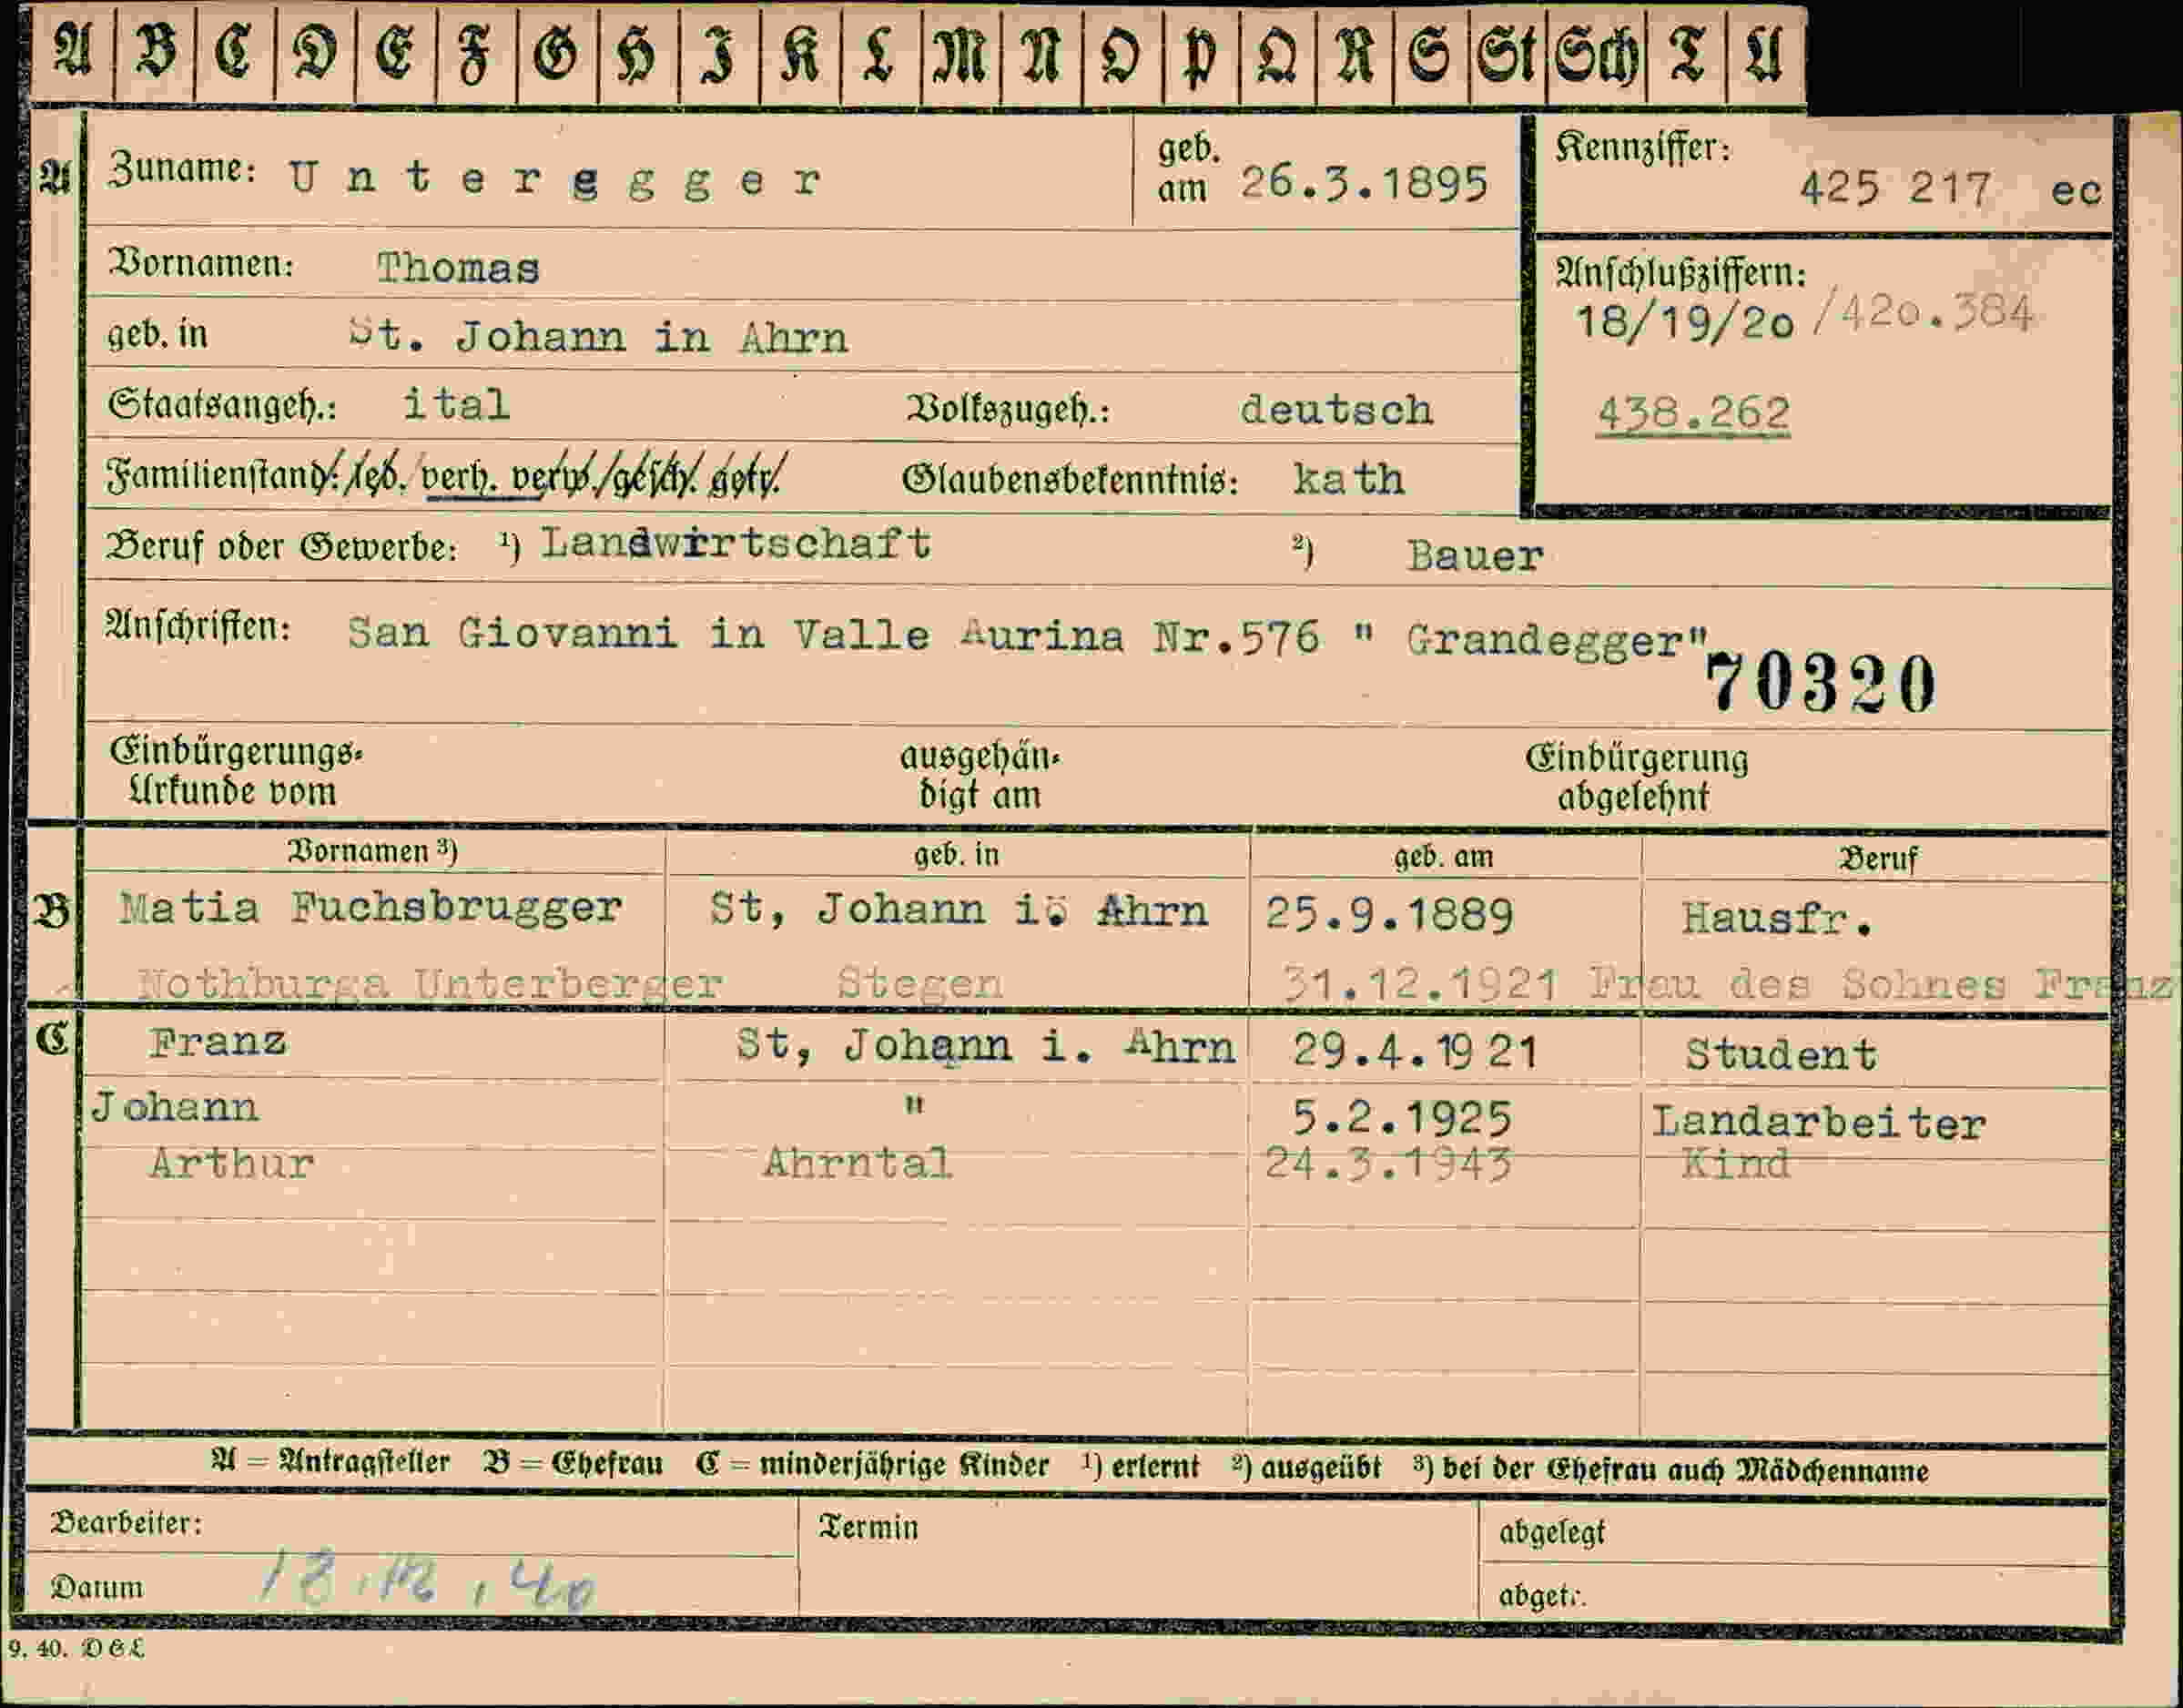 A B C D E F G H I K L M N O P Q R S St Sch T U
A Zuname: U n t e r e g g e r geb. am 26.3.1895 Kennziffer: 425 217 ec
Vornamen: Thomas Anschlußziffern:
geb. in St. Johann in Ahrn 18/19/20 /420.384
Staatsangeh.: ital Volkszugeh.: deutsch 438.262
Familienstand: led. verh. verw. gesch. getr. Glaubensbekenntnis: kath
Beruf oder Gewerbe: ¹) Landwirtschaft ²) Bauer
Anschriften: San Giovanni in Valle Aurina Nr.576 " Grandegger"
70320
Einbürgerungs- ausgehän- Einbürgerung
Urkunde vom digt am abgelehnt
Vornamen ³) geb. in geb. am Beruf
B Matia Fuchsbrugger St, Johann i. Ahrn 25.9.1889 Hausfr.
Nothburga Unterberger Stegen 31.12.1921 Frau des Sohnes Franz
C Franz St, Johann i. Ahrn 29.4.1921 Student
Johann " 5.2.1925 Landarbeiter
Arthur Ahrntal 24.3.1943 Kind
A = Antragsteller B = Ehefrau C = minderjährige Kinder ¹) erlernt ²) ausgeübt ³) bei der Ehefrau auch Mädchenname
Bearbeiter: Termin abgelegt
Datum 18.12.40 abgetr.
9. 40. D&L